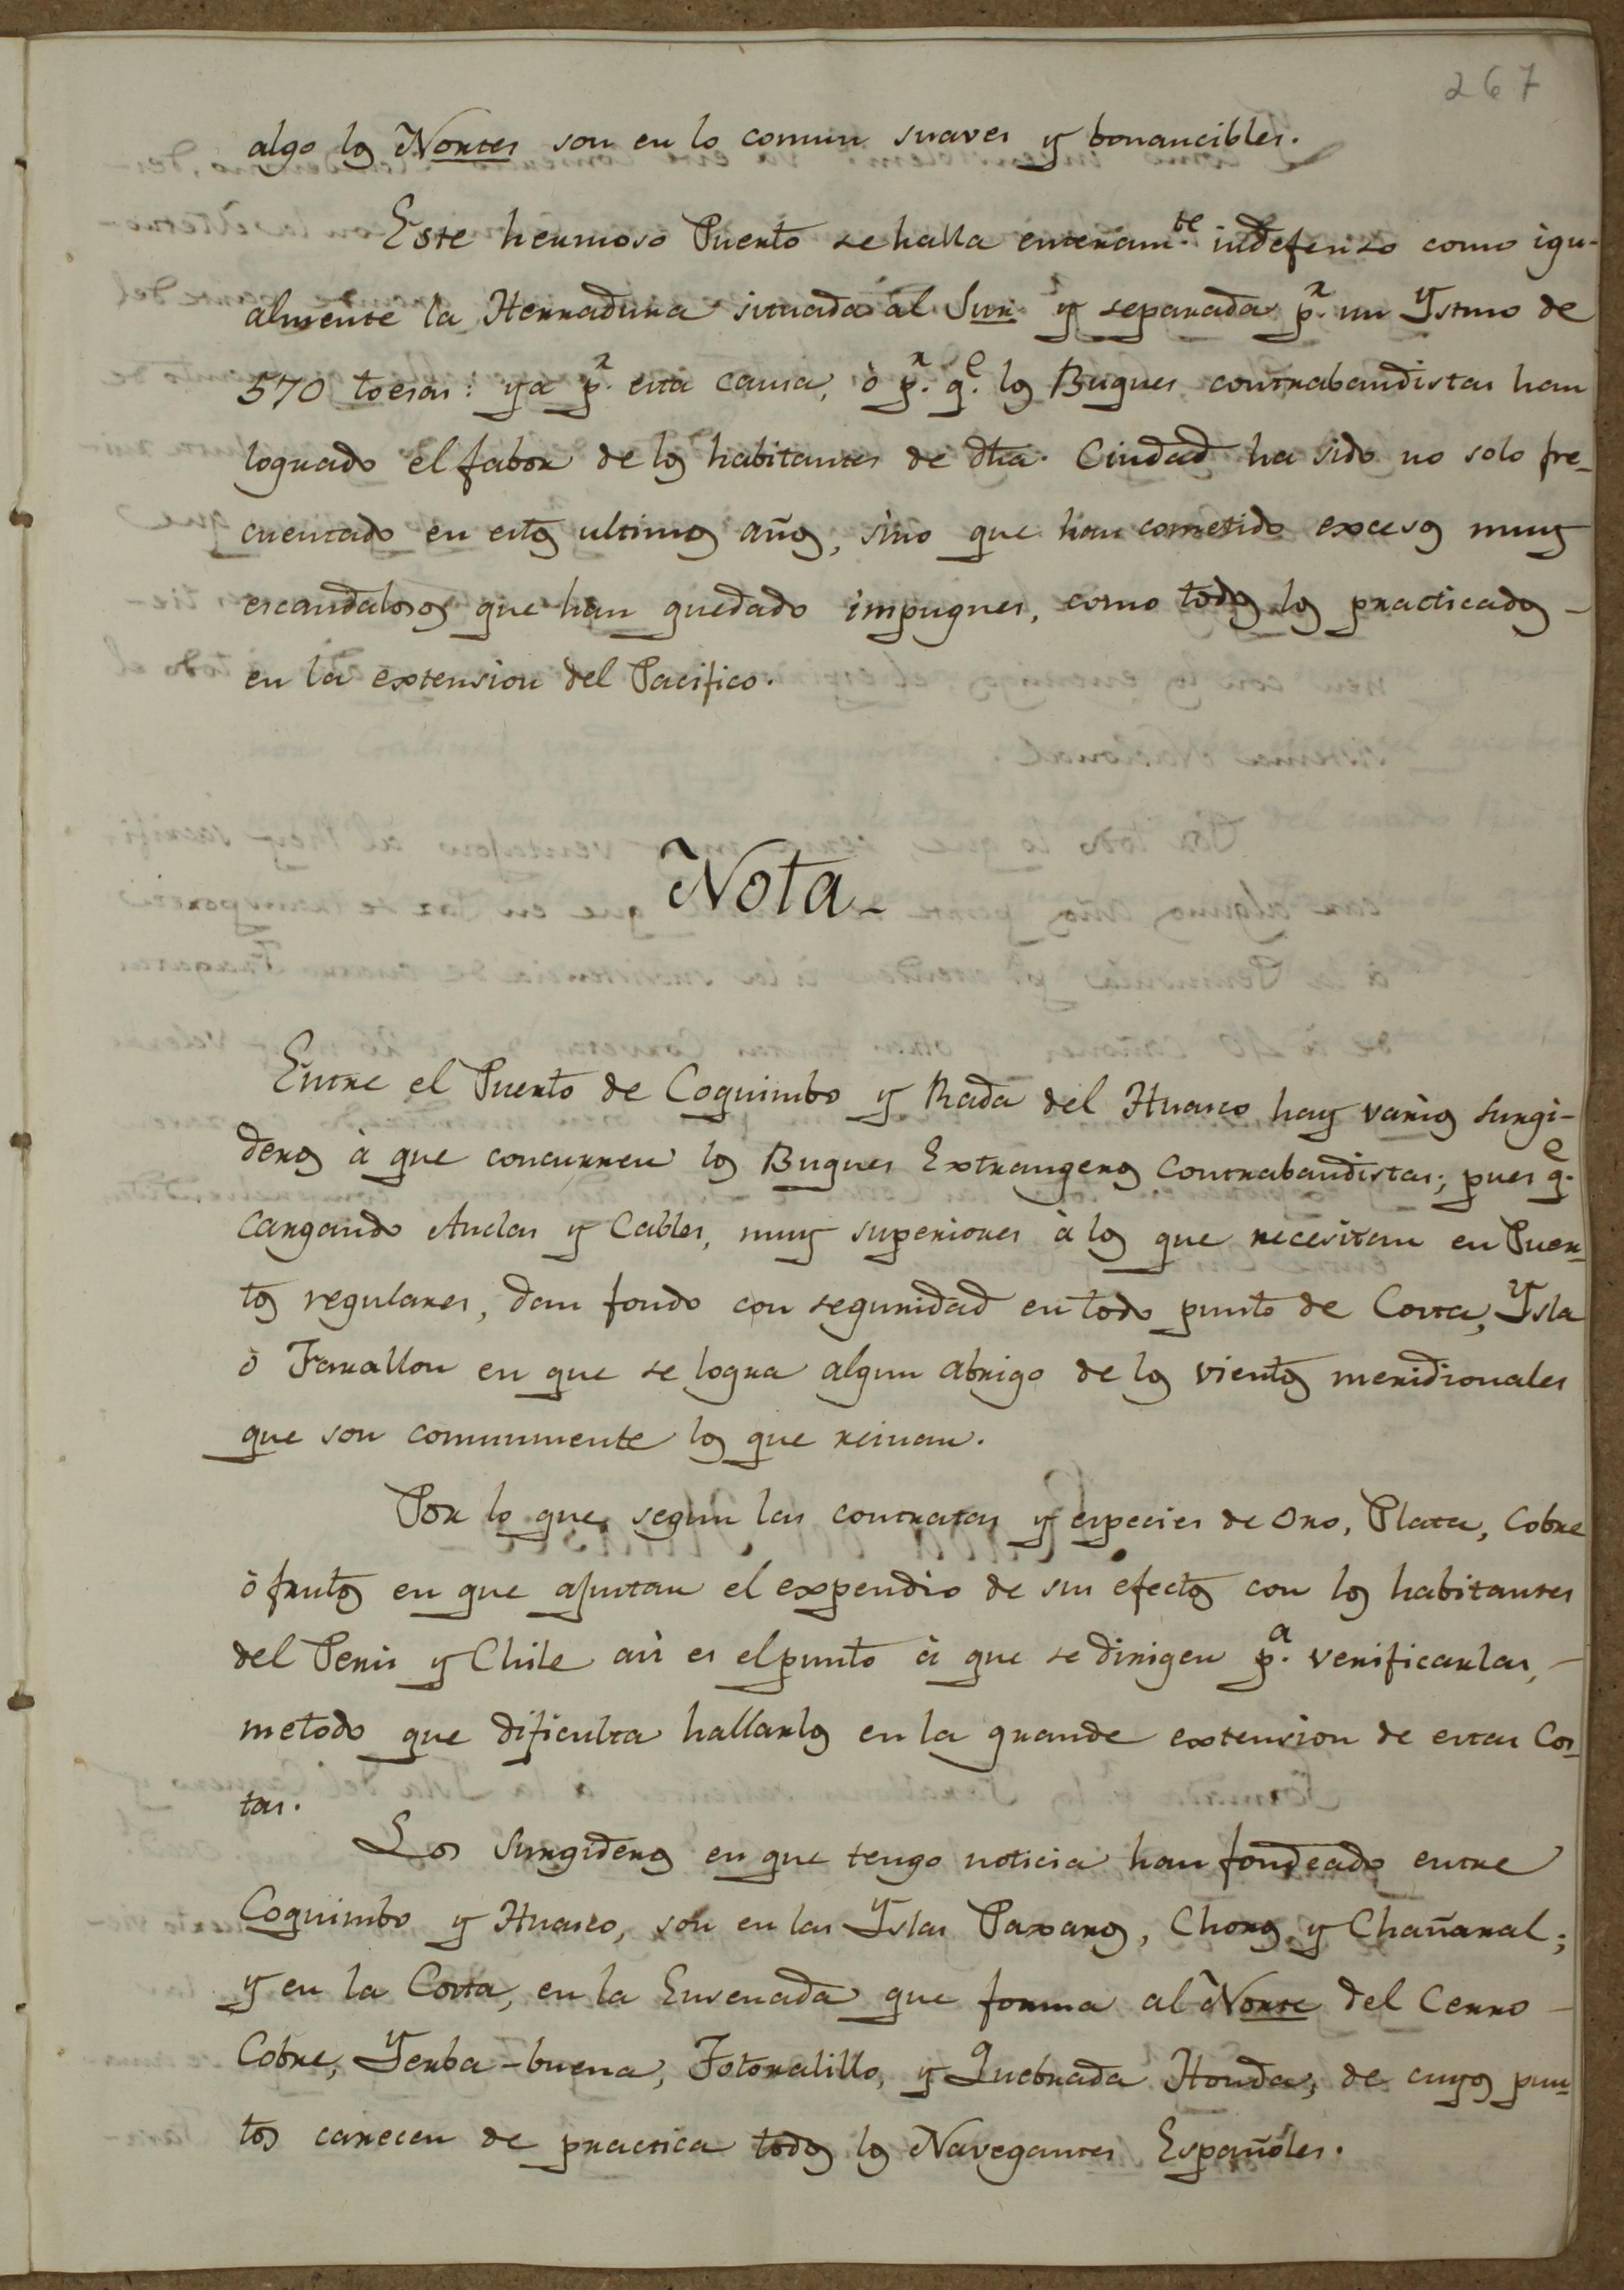 267
algo los Nortes son en lo comun suaves y bonancibles.
Este hermoso Puerto se halla enteram.te indefenso como igu-
almente la Herradura situada al Sur y separada p.r un Ystmo de
570 toesas: ya p.r esta causa, ò p.r q.e los Buques contrabandistas han
logrado el fabor de los habitantes de dha. Ciudad ha sido no solo fre-
cuentado en estos ultimos años, sino que han cometido excesos muy
escandalosos que han quedado impugnes, como todos los practicados -
en la extension del Pacifico.
Nota-
Entre el Puerto de Coquimbo y Rada del Huasco hay varios surgi-
deros à que concurren los Buques Extrangeros Contrabandistas; pues q.e
cargando Anclas y Cables, muy superiores à los que necesitan en Puer-
tos regulares, dan fondo con seguridad en todo punto de Costa, Ysla
ò Farallon en que se logra algun abrigo de los vientos meridionales
que son comunmente los que reinan.
Por lo que, segun las contratas y especies de Oro, Plata, Cobre
ò frutos en que ajustan el expendio de sus efectos con los habitantes
del Perù y Chile asi es el punto à que se dirigen p.a verificarlas, -
metodo que dificulta hallarlos en la grande extension de estas Cos-
tas.
Los Surgideros en que tengo noticia han fondeado entre
Coquimbo y Huasco, son en las Yslas Paxaros, Choros y Chañaral;
y en la Costa, en la Ensenada que forma al Norte del Cerro -
Cobre, Yerba-buena, Totoralillo, y Quebrada Honda, de cuyos pun-
tos carecen de practica todos los Navegantes Españoles.